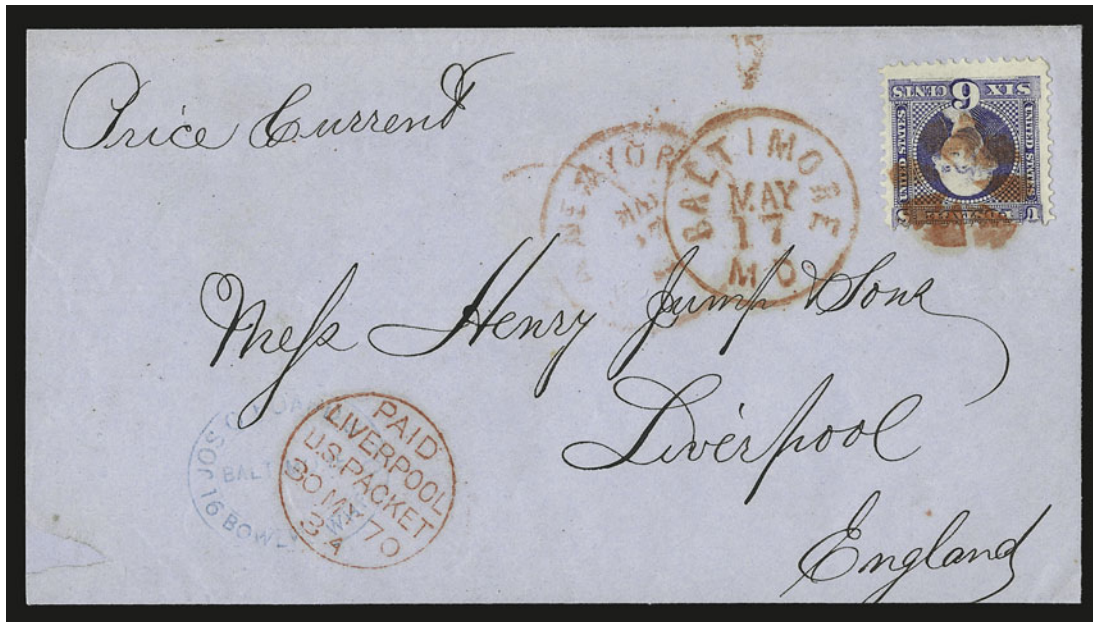 Price Current
SIX 6 CENTS
UNITED STATES
UNITED STATES
NEW YOR
BALTIMORE
MAY
17
MD
Mess Henry Jump & Sons
Liverpool
England
JOS
BALT
16 BOWL
PAID
LIVERPOOL
U.S. PACKET
30 MY 70
3A